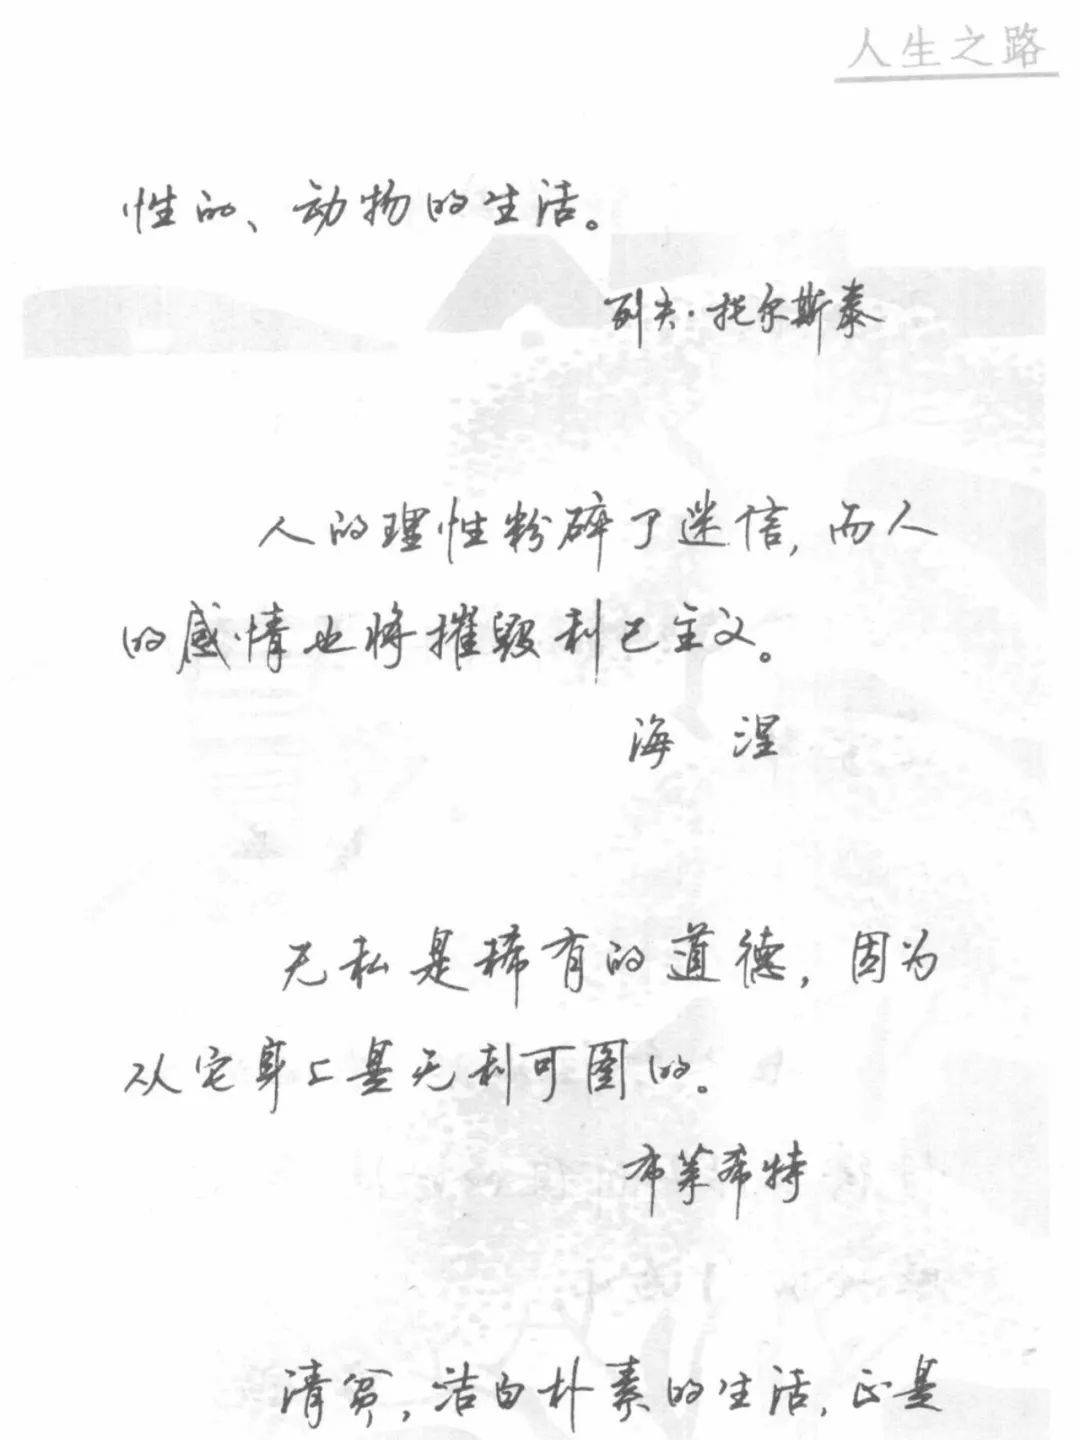 人生之路
性的、动物的生活。
列夫·托尔斯泰
人的理性粉碎了迷信,而人
的感情也将摧毁利己主义。
海 涅
无私是稀有的道德,因为
从它身上是无利可图的。
布莱希特
清贫,洁白朴素的生活,正是